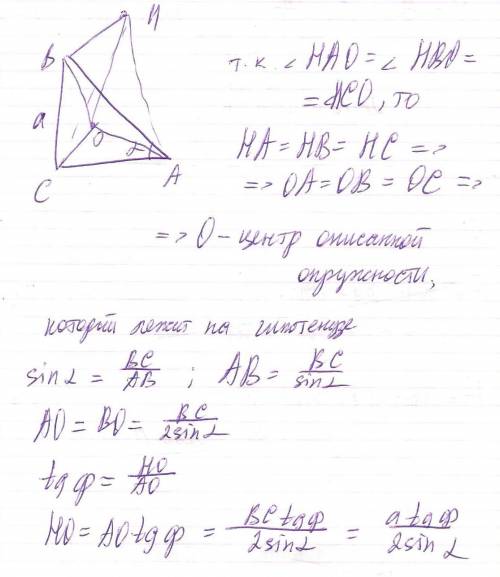 H
B
a
O
α
C
A
т.к. ∠ HAO = ∠ HBO =
= ∠HCO, то
HA = HB = HC =>
=> OA = OB = OC =>
=> O - центр описанной
окружности,
который лежит на гипотенузе
sin α = BC/AB ; AB = BC/sin α
AO = BO = BC/2sin α
tg φ = HO/AO
HO = AO tg φ = BC tg φ/2sin α = a tg φ/2sin α